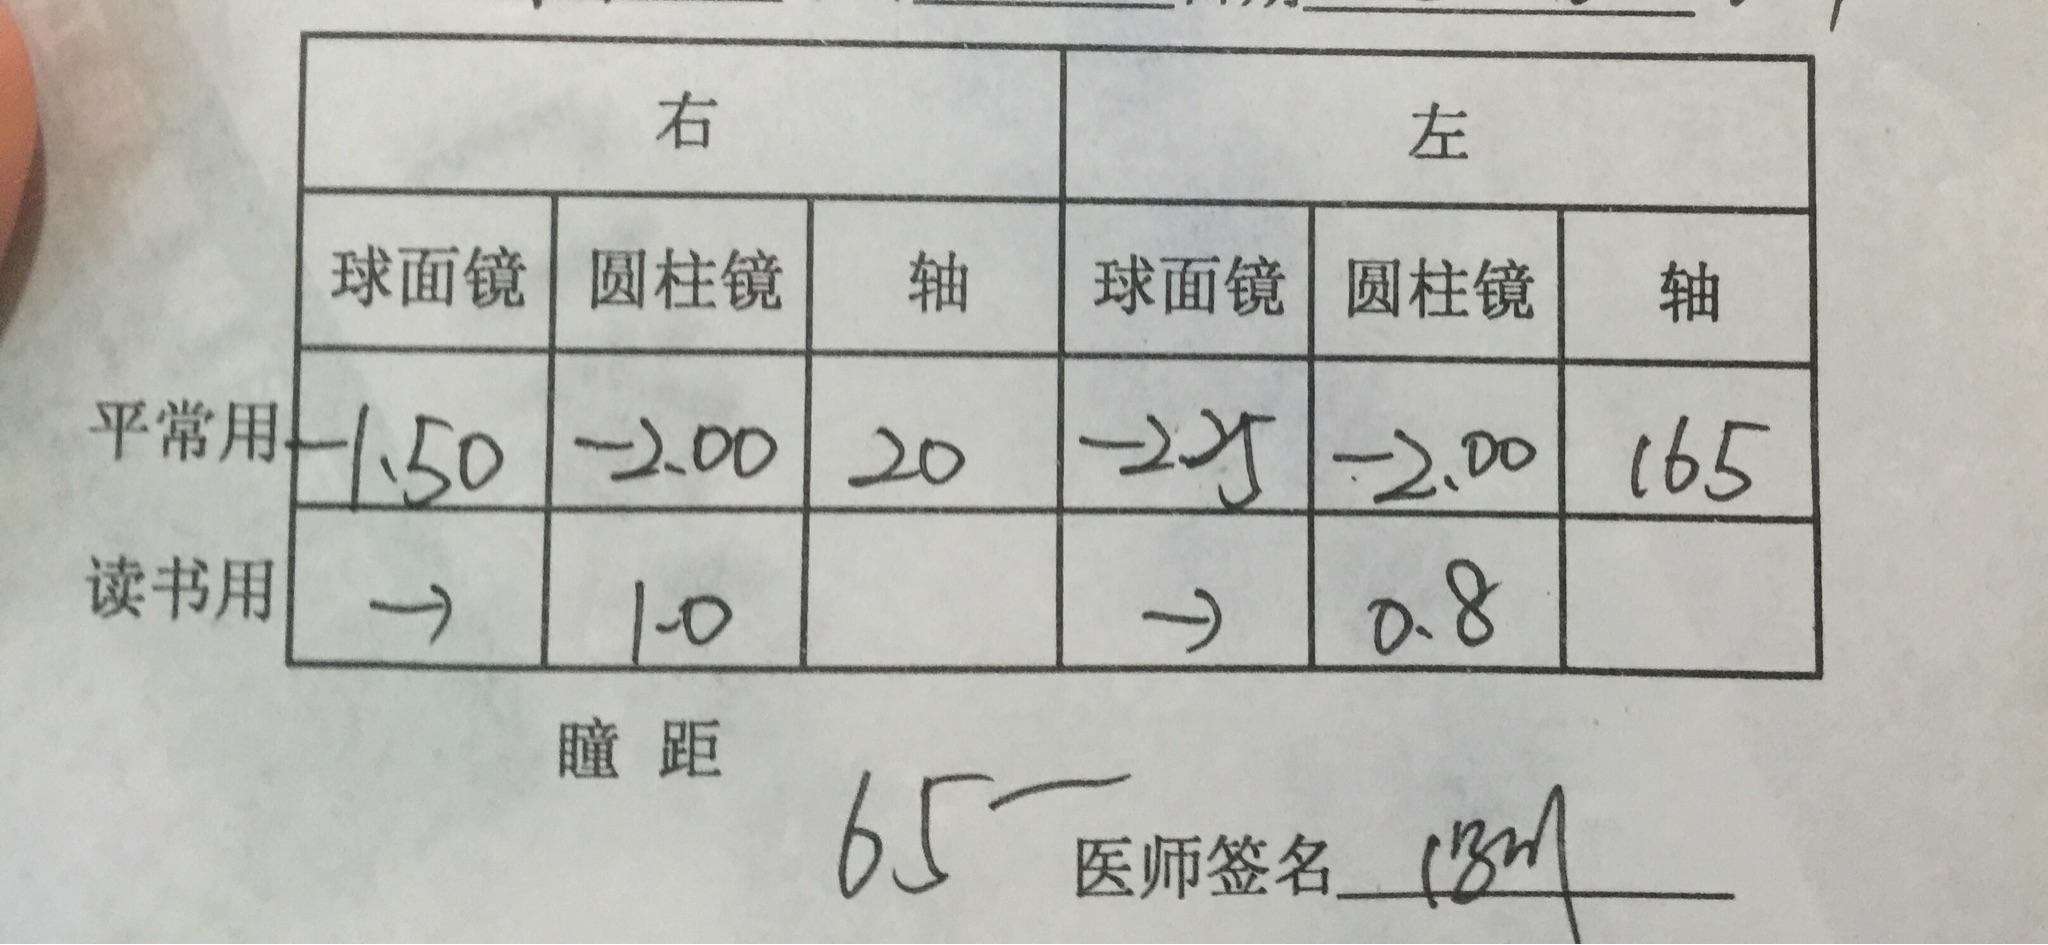 右 左
球面镜 圆柱镜 轴 球面镜 圆柱镜 轴
平常用 -1.50 -2.00 20 -2.25 -2.00 165
读书用 → 1.0 → 0.8
瞳 距 65
医师签名